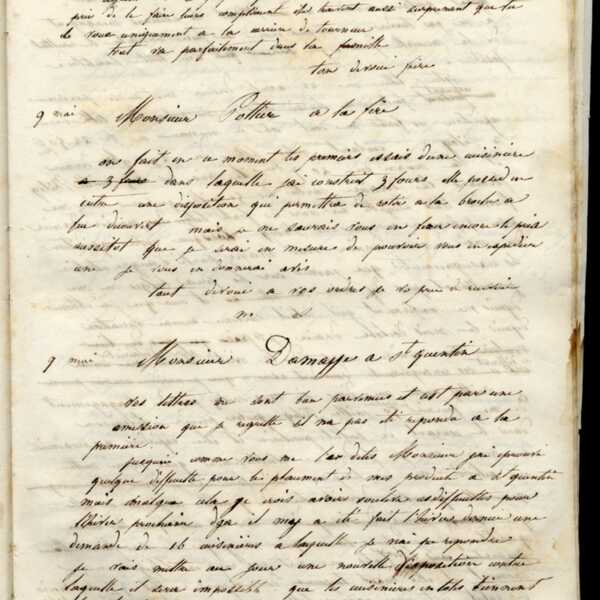 prie de le faire leurs compliment ils trouvent aussi surprenant que tu
te voue uniquement a la carrière de tourneur
tout va parfaitement dans la famille
ton devoué frère
9 mai Monsieur Pottier a la fère
on fait en ce moment les premiers essais dune cuisinière
a 3 fours dans laquelle jai construit 3 fours elle possède en
outre une disposition qui permettra de rotir a la broche a
feu découvert mais je ne saurais vous en fixer encore le prix
aussitot que je serai en mesure de pouvoir vous en expedier
une je vous en donnerai avis
tout devoué a vos ordres je vs prie de recevoir
m
9 mai Monsieur Damasse a St quentin
vos lettres me sont bien parvenues et cest par une
omission que je regrette il na pas été repondu a la
première
jusquici comme vous me l'as dites Monsieur jai eprouvé
quelque difficulté pour le placement de mes produits a St quentin
mais malgré cela je crois avoir ces difficultés pour
lhiver prochain deja il may a été fait lhiver dernier une
demande de 16 cuisinières a laquelle je nai pu repondre
je vais mettre au jour une nouvelle disposition contre
laquelle il sera impossible que les cuisinières en toles tiennent